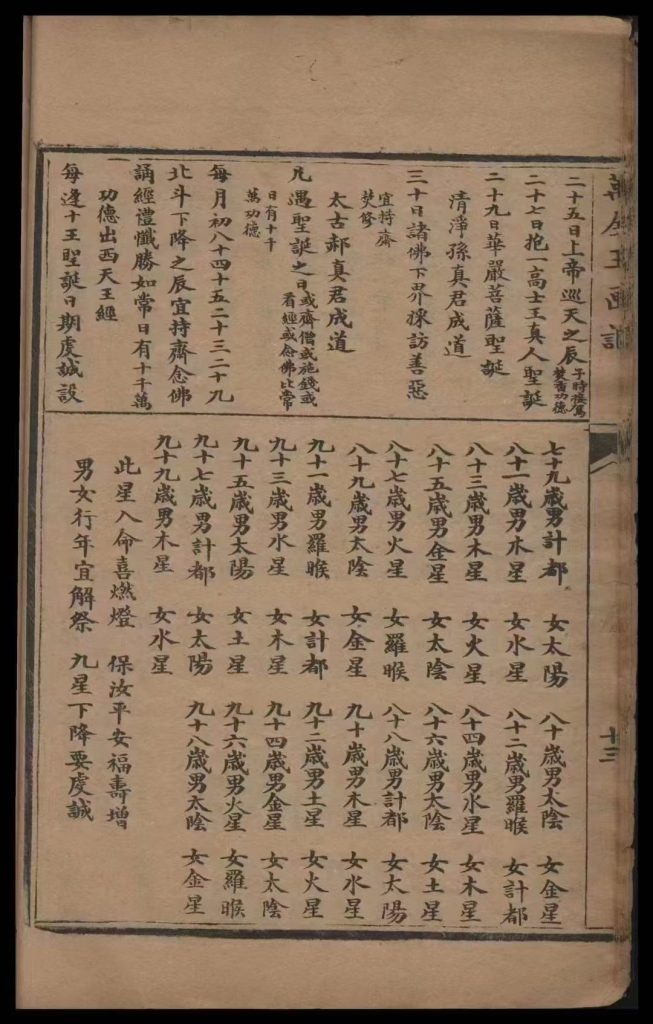 二十五日上帝巡天之辰子時接駕焚香功德
二十七日抱一高士王真人聖誕
二十九日華嚴菩薩聖誕
清淨孫真君成道
三十日諸佛下界採訪善惡
宜持齋
焚修
太古郝真君成道
凡遇聖誕之日或齋僧或施錢或看經或念佛比常
日有十千
萬功德
每月初八十四十五二十三二十九
北斗下降之辰宜持齋念佛
誦經禮懺勝如常日有十千萬
功德出西天王經
每逢十王聖誕日期虔誠設
十三
七十九歲男計都 女太陽 八十歲男太陰 女金星
八十一歲男木星 女水星 八十二歲男羅睺 女計都
八十三歲男木星 女火星 八十四歲男水星 女木星
八十五歲男金星 女太陰 八十六歲男太陰 女土星
八十七歲男火星 女羅睺 八十八歲男計都 女太陽
八十九歲男太陰 女金星 九十歲男木星 女水星
九十一歲男羅睺 女計都 九十二歲男土星 女火星
九十三歲男水星 女木星 九十四歲男金星 女太陰
九十五歲男太陽 女土星 九十六歲男火星 女羅睺
九十七歲男計都 女太陽 九十八歲男太陰 女金星
九十九歲男木星 女水星
此星入命喜燃燈 保汝平安福壽增
男女行年宜解祭 九星下降要虔誠